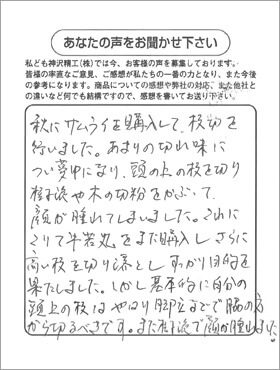 あなたの声をお聞かせ下さい
私ども神沢精工(株)では今、お客様の声を募集しております。
皆様の率直なご意見、ご感想が私たちの一番の力となり、また今後
の参考になります。商品についての感想や弊社の対応、また他社と
の違いなど何でも結構ですので、感想を書いてお送り下さい。
秋にサムライを購入して、枝切を
行いました。あまりの切れ味に
つい夢中になり、頭の上の枝を切り
樹液や木の切粉をかぶって、
顔が腫れてしまいました。これに
こりて牛若丸をまた購入し さらに
高い枝を切り落とし すっかり目的を
果たしました。しかし基本的に自分の
頭上の枝は やはり脚立などで脇の方
から切るべきです。また樹液で顔が腫れました。